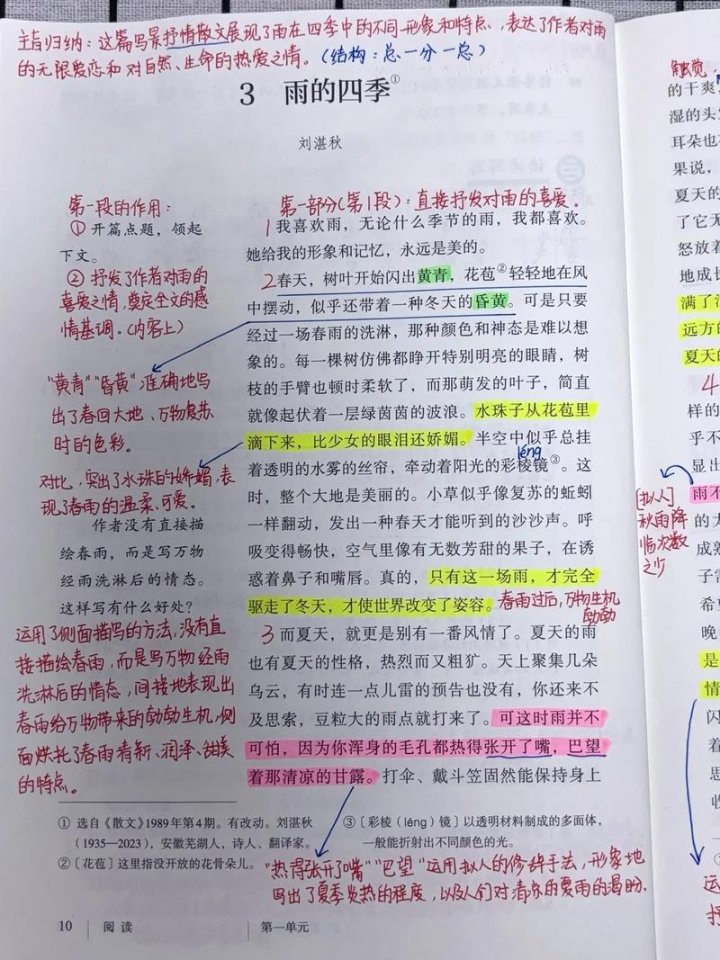 主旨归纳：这篇写景抒情散文展现了雨在四季中的不同形象和特点，表达了作者对雨
的无限爱恋和对自然、生命的热爱之情。（结构：总一分一总）
3 雨的四季①
刘湛秋
第一段的作用：
① 开篇点题，领起
下文。
② 抒发了作者对雨的
喜爱之情，奠定全文的感
情基调。(内容上)
"黄青""昏黄"准确地写
出了春回大地、万物复苏
时的色彩。
对比，突出了水珠的娇媚，表
现了春雨的温柔、可爱。
作者没有直接描
绘春雨，而是写万物
经雨洗淋后的情态。
这样写有什么好处？
运用了侧面描写的方法，没有直
接描绘春雨，而是写万物经雨
洗淋后的情态，间接地表现出
春雨给万物带来的勃勃生机，侧
面烘托了春雨清新、润泽、甜美
的特点。
第一部分(第1段)：直接抒发对雨的喜爱。
1我喜欢雨，无论什么季节的雨，我都喜欢。
她给我的形象和记忆，永远是美的。
2春天，树叶开始闪出黄青，花苞②轻轻地在风
中摆动，似乎还带着一种冬天的昏黄。可是只要
经过一场春雨的洗淋，那种颜色和神态是难以想
象的。每一棵树仿佛都睁开特别明亮的眼睛，树
枝的手臂也顿时柔软了，而那萌发的叶子，简直
就像起伏着一层绿茵茵的波浪。水珠子从花苞里
滴下来，比少女的眼泪还娇媚。半空中似乎总挂
léng
着透明的水雾的丝帘，牵动着阳光的彩棱镜③。这
时，整个大地是美丽的。小草似乎像复苏的蚯蚓
一样翻动，发出一种春天才能听到的沙沙声。呼
吸变得畅快，空气里像有无数芳甜的果子，在诱
惑着鼻子和嘴唇。真的，只有这一场雨，才完全
驱走了冬天，才使世界改变了姿容。春雨过后，万物生机
勃勃
3而夏天，就更是别有一番风情了。夏天的雨
也有夏天的性格，热烈而又粗犷。天上聚集几朵
乌云，有时连一点儿雷的预告也没有，你还来不
及思索，豆粒大的雨点就打来了。可这时雨并不
可怕，因为你浑身的毛孔都热得张开了嘴，巴望
着那清凉的甘露。打伞、戴斗笠固然能保持身上
① 选自《散文》1989年第4期。有改动。刘湛秋
（1935—2023），安徽芜湖人，诗人、翻译家。
② [花苞] 这里指没开放的花骨朵儿。
③ [彩棱（léng）镜] 以透明材料制成的多面体，
一般能折射出不同颜色的光。
"热得张开了嘴""巴望"运用拟人的修辞手法，形象地
写出了夏季炎热的程度，以及人们对清凉的夏雨的渴盼。
10 阅读 第一单元
触觉，
的干爽
湿的头
耳朵也
果说，
夏天的
了它无
怒放着
地成长
满了
远方的
夏天的
4
样的
乎不
显出
雨不
[拟人]
秋雨降
临次数
之少
的大
成熟
子常
希望
晚
是
情
闪
着
思
收